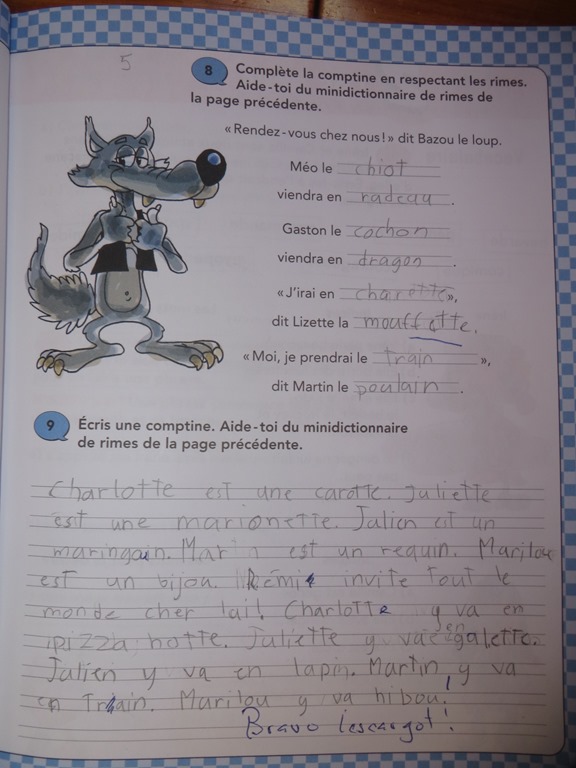 5
8 Complète la comptine en respectant les rimes.
Aide-toi du minidictionnaire de rimes de
la page précédente.
« Rendez-vous chez nous ! » dit Bazou le loup.
Méo le chiot
viendra en radeau.
Gaston le cochon
viendra en dragon.
« J'irai en charette »,
dit Lizette la mouffette.
« Moi, je prendrai le train »,
dit Martin le poulain.
9 Écris une comptine. Aide-toi du minidictionnaire
de rimes de la page précédente.
Charlotte est une carotte. Juliette
est une marionette. Julien est un
maringouin. Martin est un requin. Marilou
est un bijou. Rémi invite tout le
monde cher lui! Charlotte y va en
pizza hotte. Juliette y va en galette.
Julien y va en lapin. Martin y va
en train. Marilou y va hibou!
Bravo l'escargot!